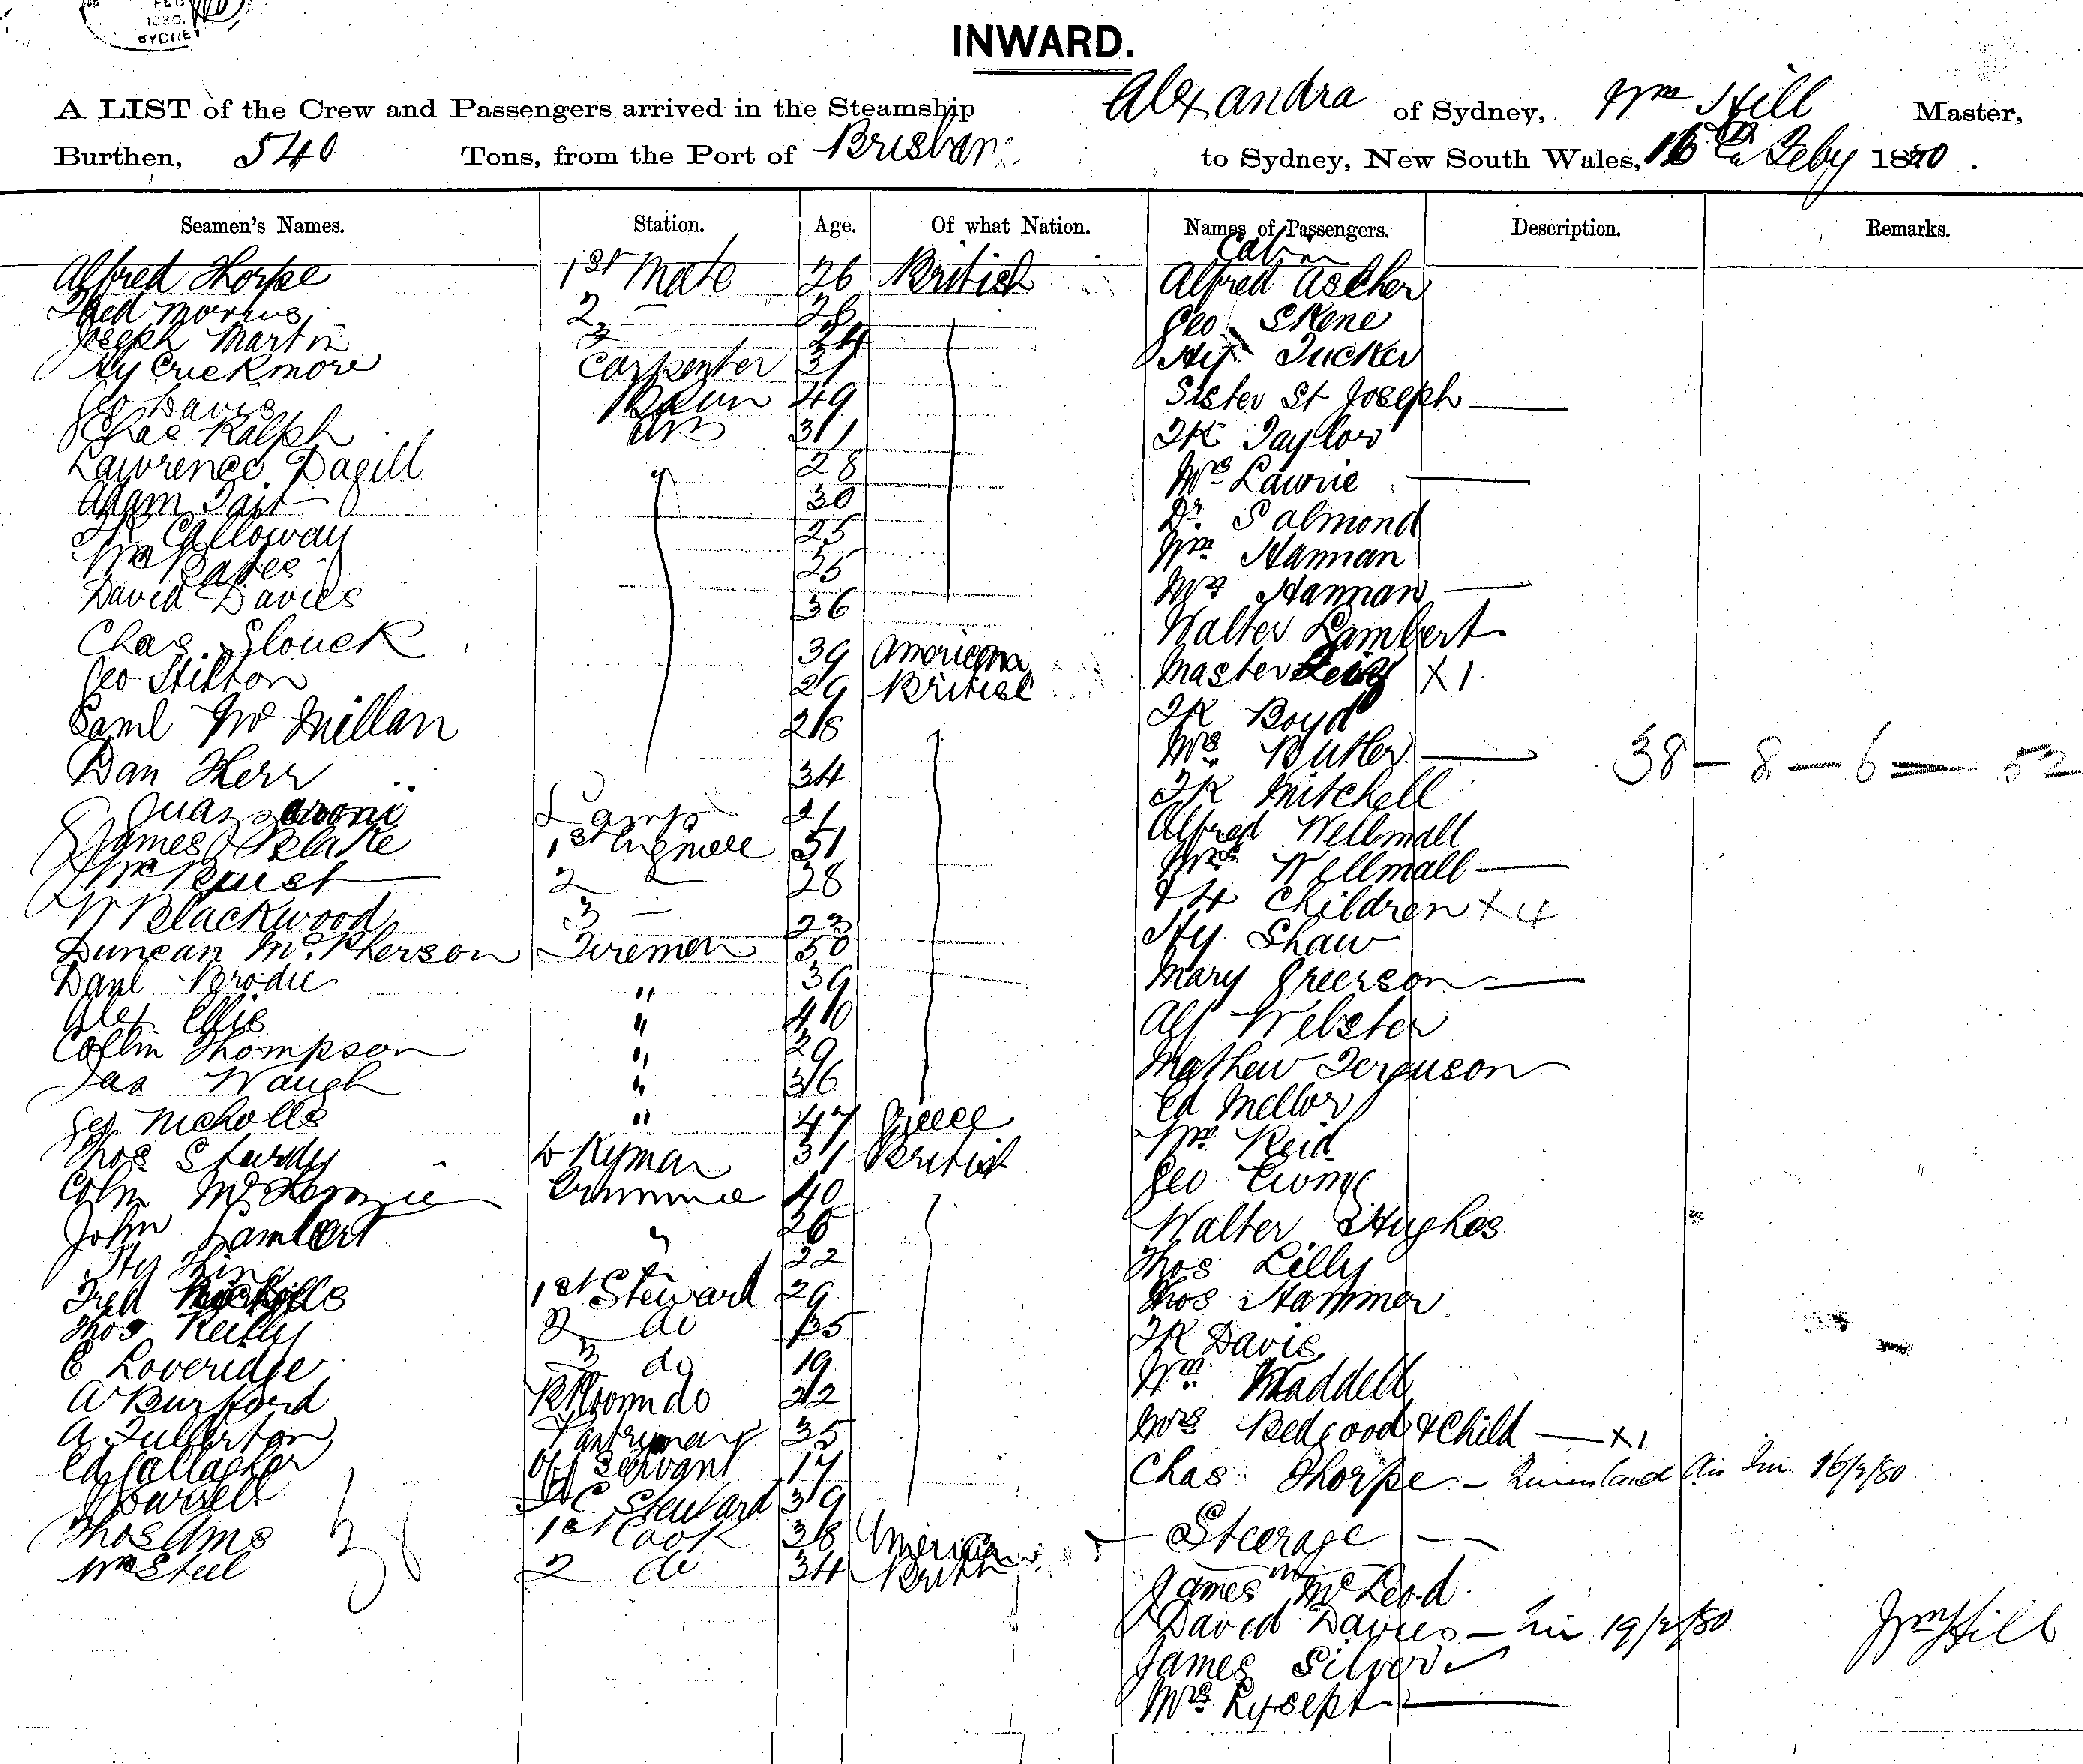 FEB
1880
SYDNEY
INWARD.
A LIST of the Crew and Passengers arrived in the Steamship Alexandra of Sydney, Wm Hill Master,
Burthen, 540 Tons, from the Port of Brisbane to Sydney, New South Wales, Feby 1880.
Seamen's Names. Station. Age. Of what Nation. Names of Passengers. Description. Remarks.
Cabin
Alfred Thorpe 1st Mate 26 British Alfred Ascher
Fred Morris 2 — 28 Geo Skene
Joseph Martin 3 24 Hy Tucker
Hy Crickmore Carpenter 31 Sister St Joseph
Geo Davis 49 JK Taylor
Chas Ralph AB 31 Mrs Lawrie
Lawrence Dagill 28 Dr. Salmond
Adam Tait 30 Wm Hannan
Calloway 25 Mrs Hannan
Wm Bates 25 Walter Lambert
David Davies 36 Master X 1
Chas. Glouck 39 American JK Boyd
Geo Stilton 29 British Mrs Butler
Saml Mc Millan 28 JK Mitchell
Dan Kerr 34 Alfred Wellmall 38 – 8 – 6 = 52
Lamps 21 Mrs Wellmall
James Blake 1st Engineer 51 & 4 Children X 4
Wm 2 — 28 Hy Shaw
W Blackwood 3 — 23 Mary Greerson
Duncan McPherson Firemen 50 Alf Webster
Danl Brodie " 39 Mathew Ferguson
Alex Ellis " 40 Ed Mellor
Collin Thompson " 29 Wm Reid
Jas Waugh " 36 Geo
Geo Nicholls " 47 Greece Walter Hughes
Thos Sturdy Dkyman 31 British Thos Lilly
Colin Mc Trimmer 40 Thos Hammer
John Lambert " 26 JK Davis
Hy King 22 Wm Waddell
Fred 1st Steward 29 Mrs Bedgood & Child — X1
Thos Reilly 2 do 35 Chas Thorpe — Queensland 16/2/80
E Loveridge 3 do 19 Steerage
A Burford do 22 James McLeod
A. Fullerton Pantryman 35 David Davies — 19/2/80
Ed Gallagher Off Servant 17 James Silver
Steward 39 Mrs
Thos Ams 1st Cook 38 American
Wm Steel 2 do 34 British
38
Wm Hill